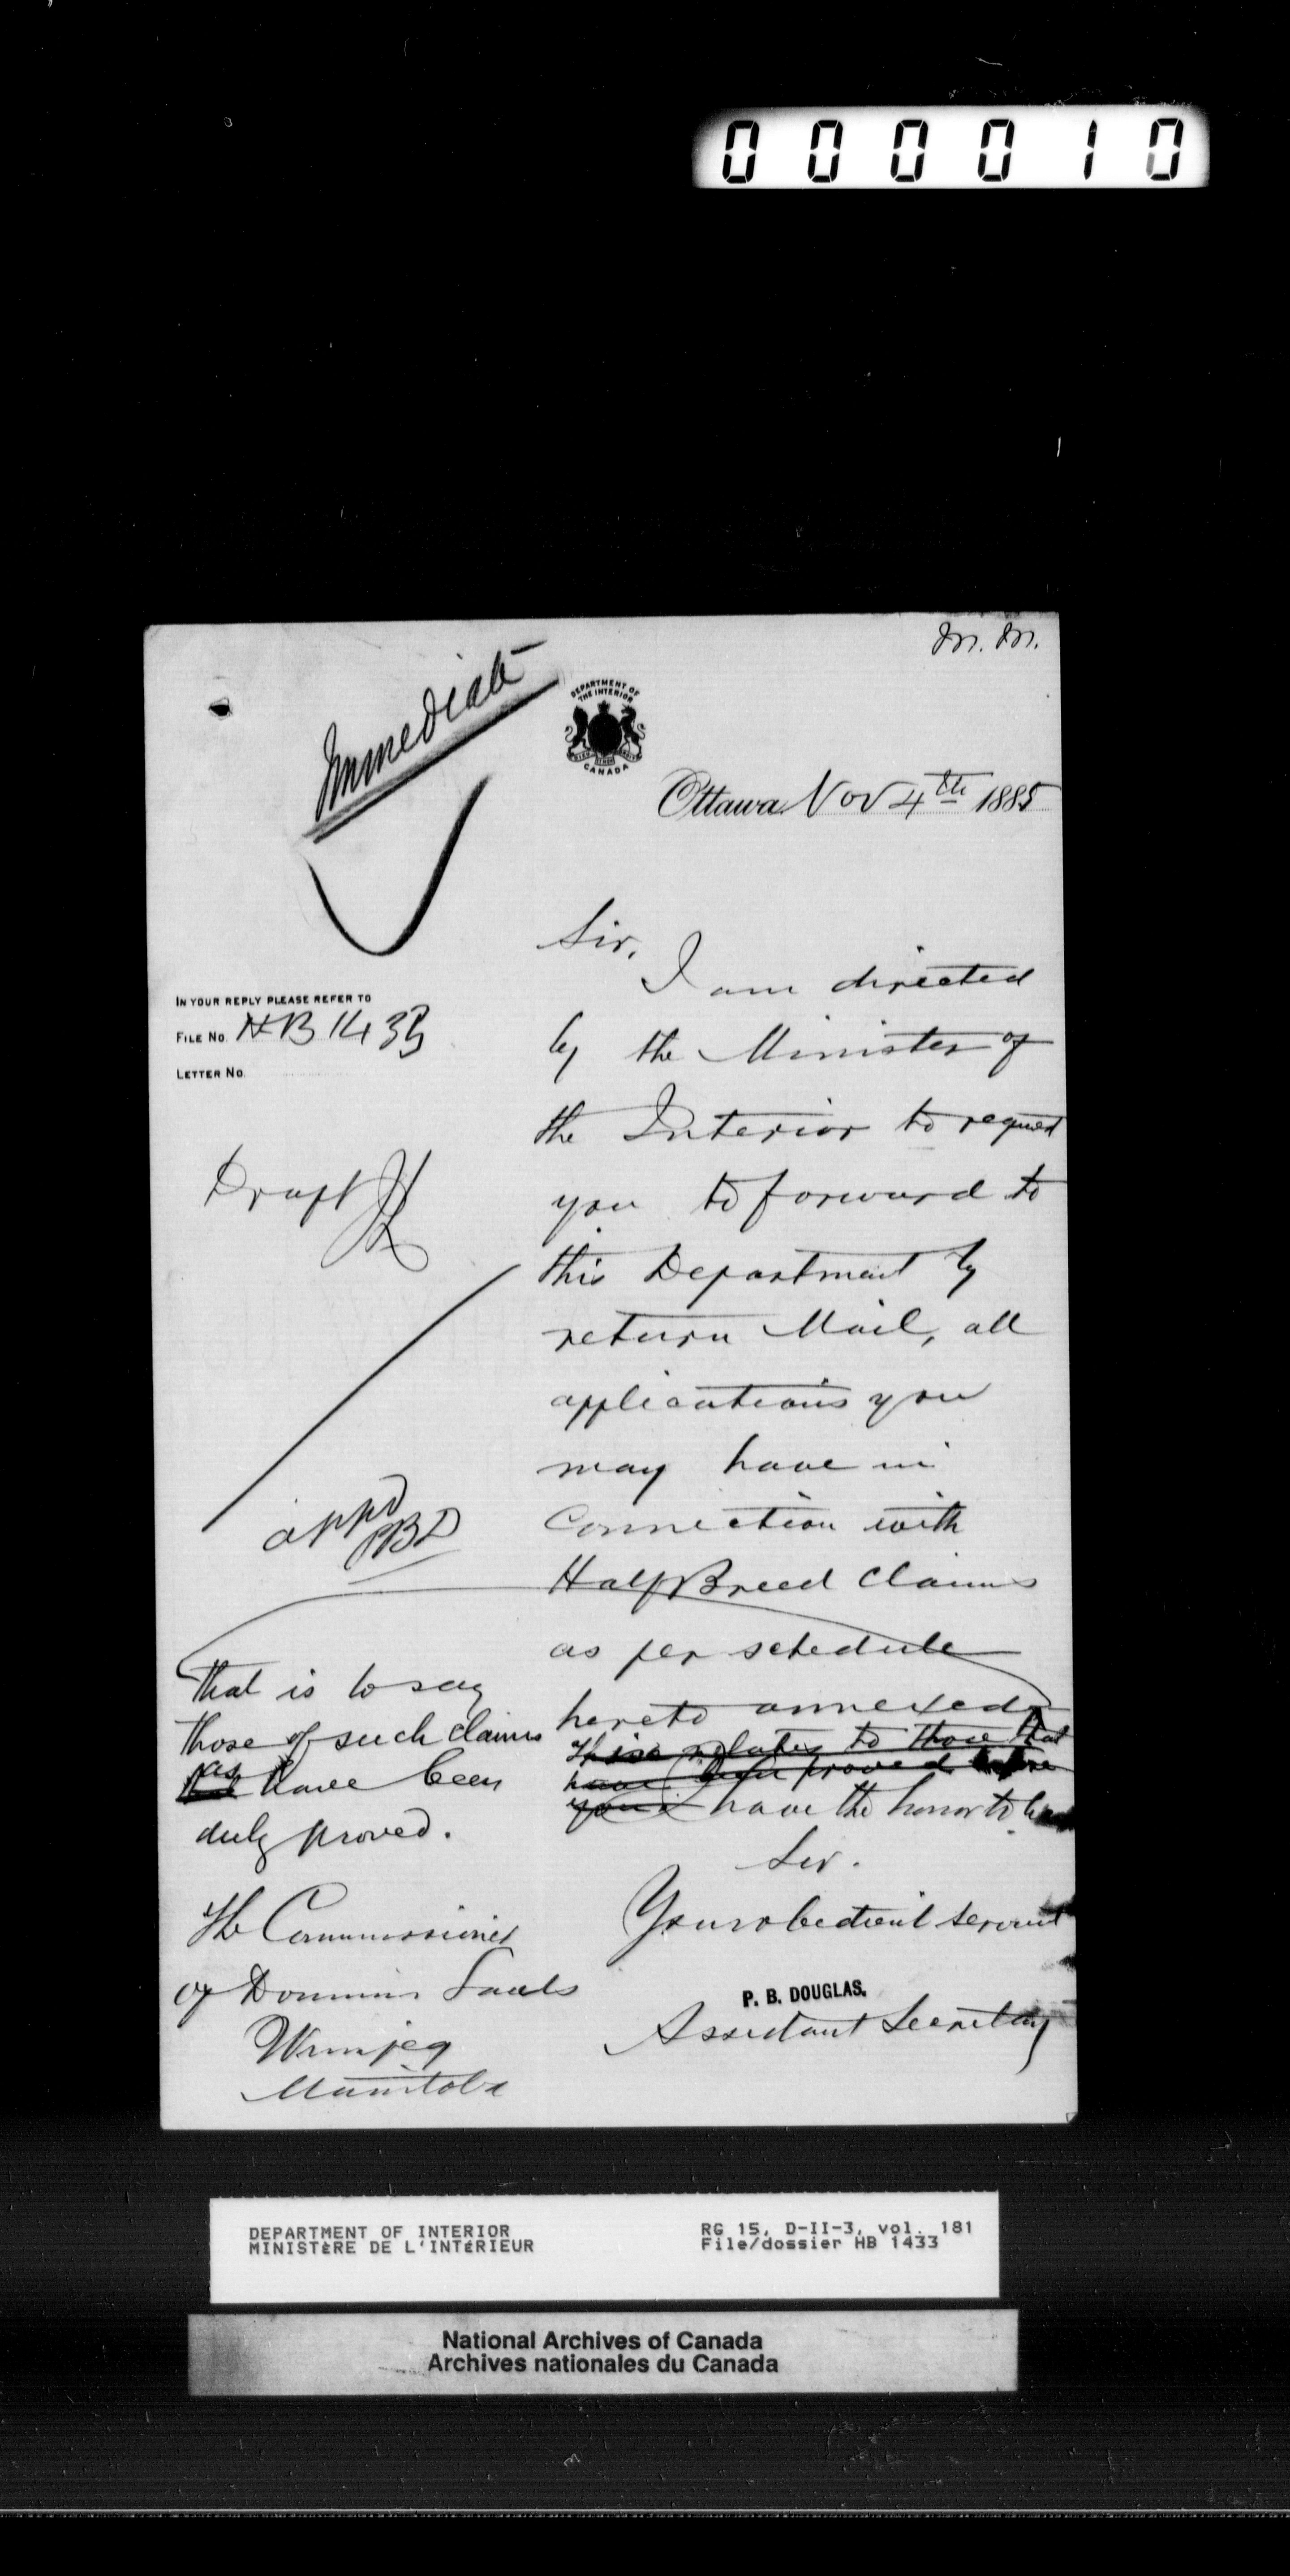 000010
M. M.
Immediate
DEPARTMENT OF
THE INTERIOR
CANADA
Ottawa Nov 4th 1885
Sir,
I am directed
IN YOUR REPLY PLEASE REFER TO
FILE No. HB 1433
LETTER No.
by the Minister of
the Interior to request
Draft
you to forward to
this Department by
return Mail, all
applications you
may have in
appd PBD
Connection with
Half Breed Claims
as per schedule
hereto annexed
that is to say
those of such claims
as have been
duly proved.
This relates to those that
have been proved before
you. I have the honor to be
Sir.
Your obedient servant
P. B. DOUGLAS.
Assistant Secretary
The Commissioner
of Dominion Lands
Winnipeg
Manitoba
DEPARTMENT OF INTERIOR
MINISTÈRE DE L'INTÉRIEUR
RG 15, D-II-3, vol. 181
File/dossier HB 1433
National Archives of Canada
Archives nationales du Canada